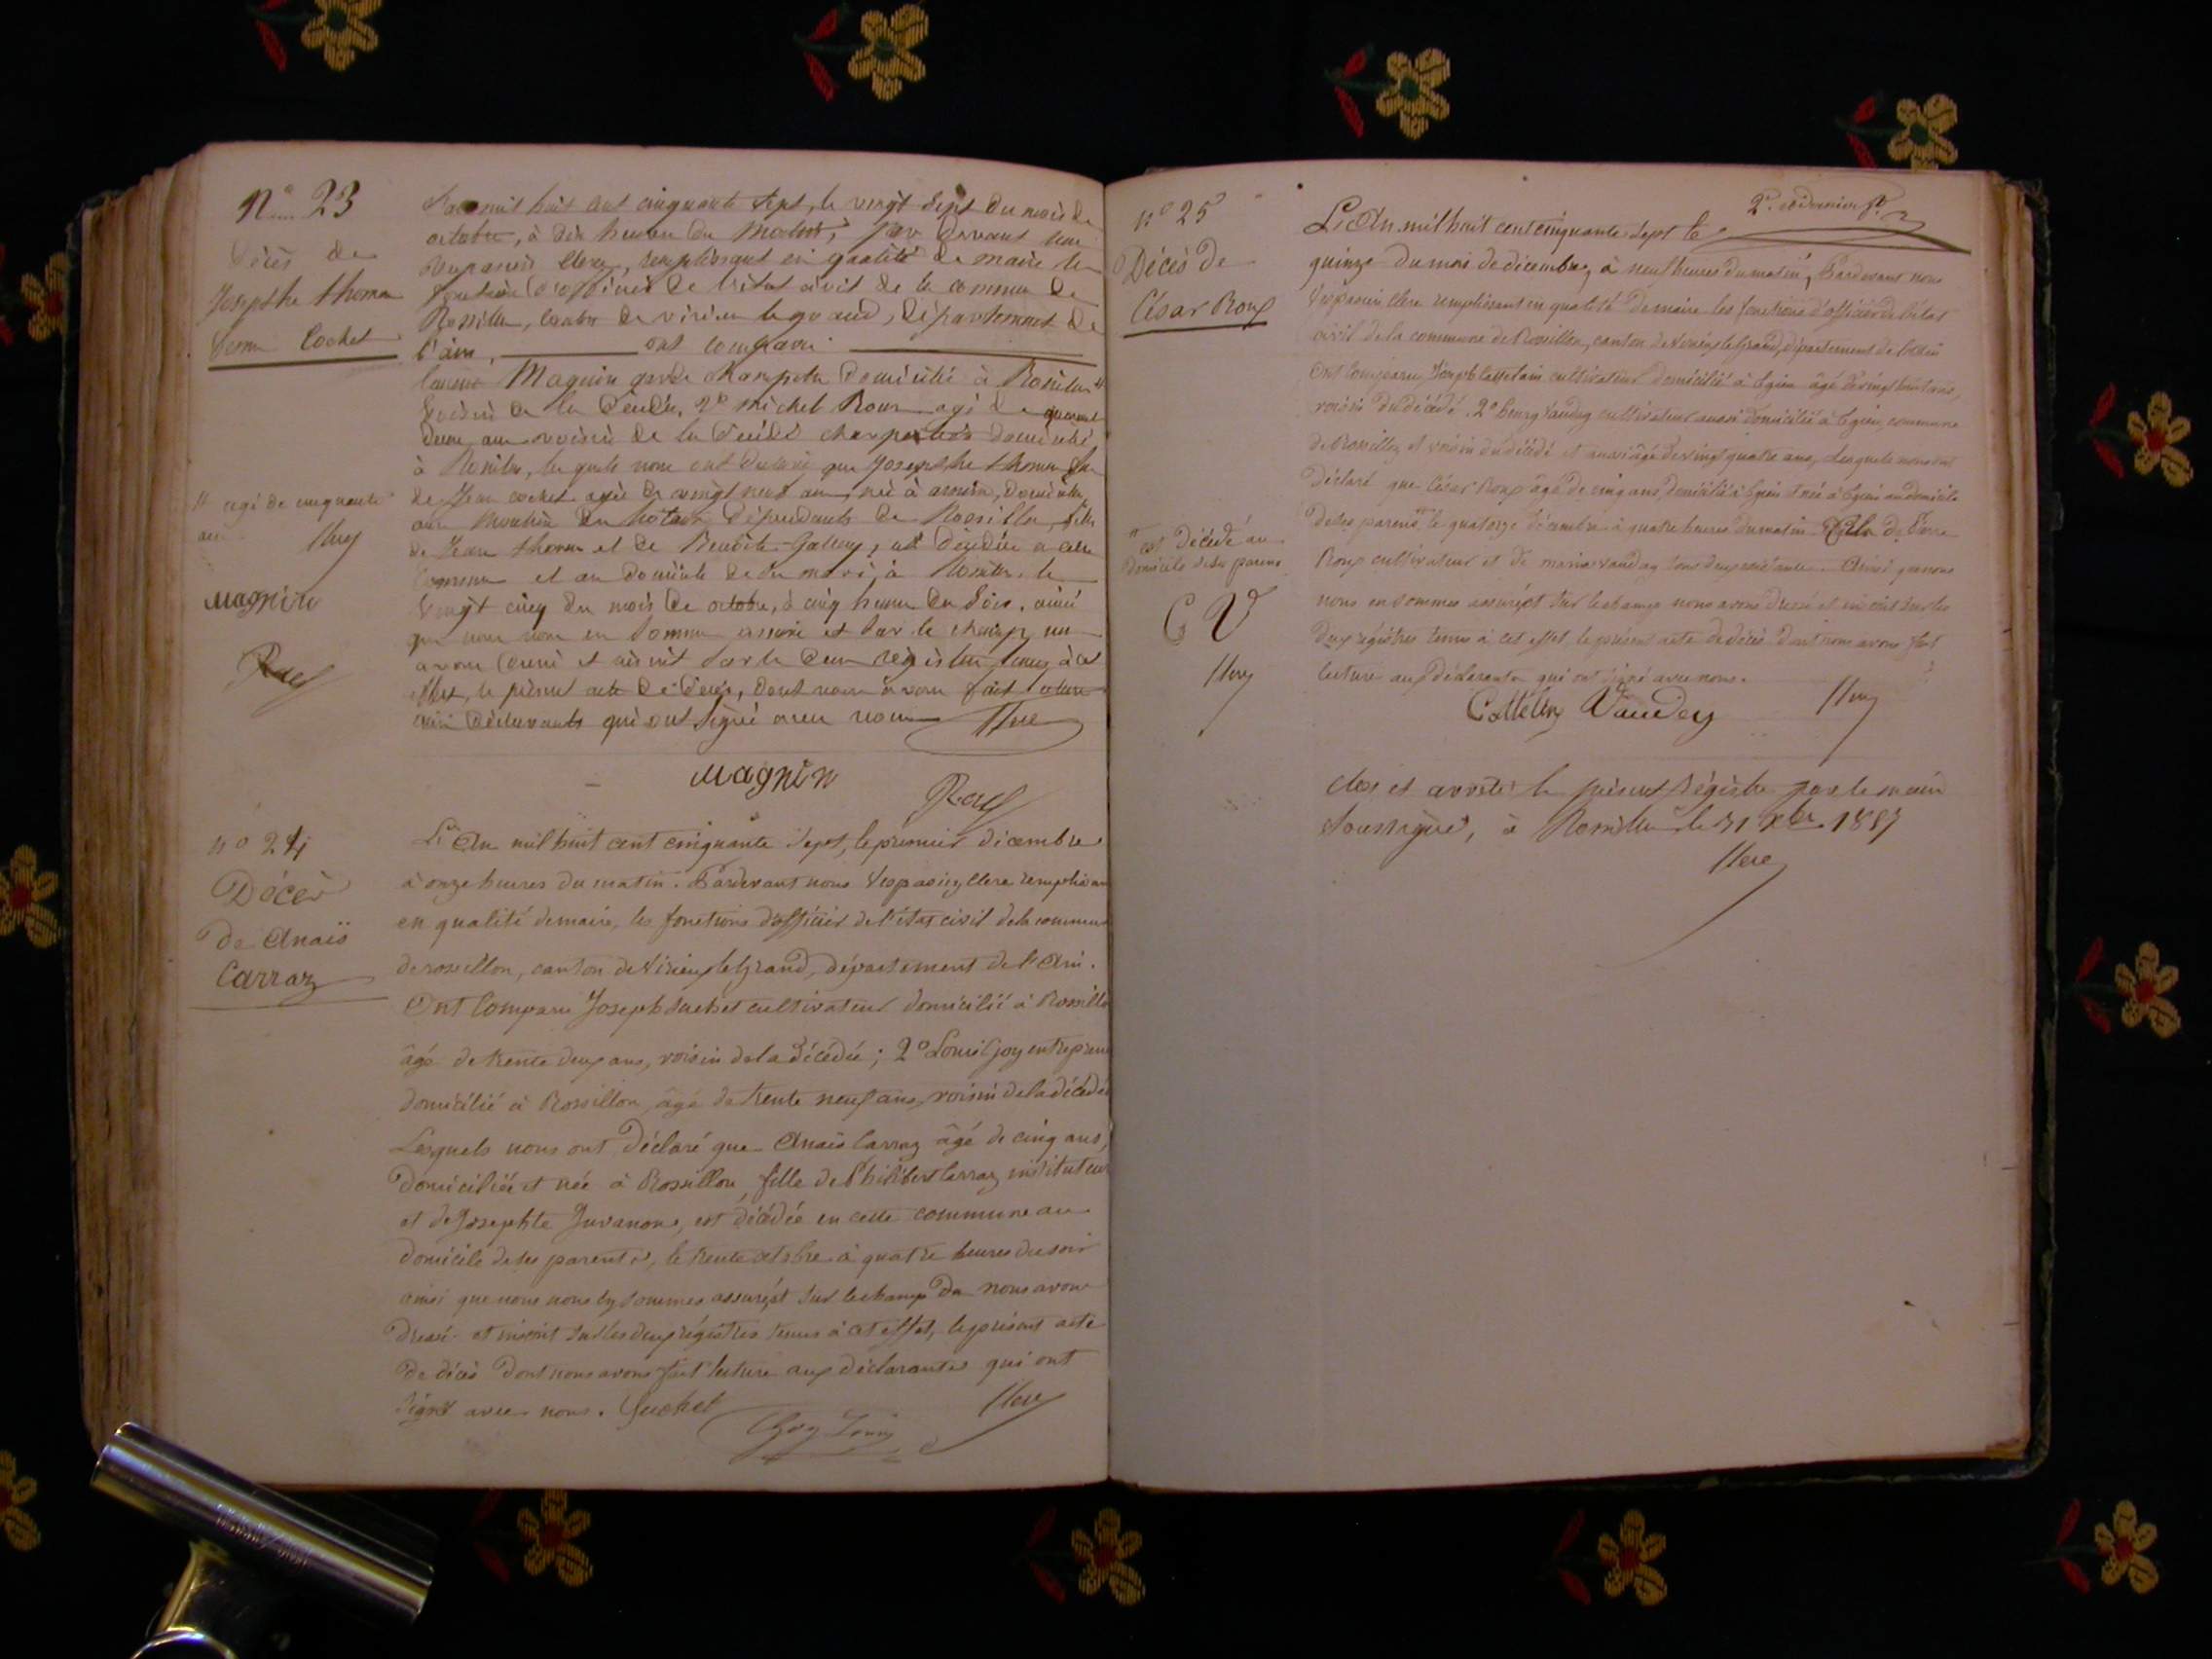 N° 23
Décès de
Josephte thomas
femme Cochet
L'an mil huit cent cinquante sept, le vingt sept du mois de
octobre, à dix heures du matin, par devant nous
Vespasien Clerc, remplissant en qualité de maire les
fonctions d'officier de l'état civil de la commune de
Rossillon, canton de virieu le grand, département de
l'ain, ont comparu
Magnin garde champêtre domicilié à Rossillon
voisin de la décédée, 2° michel Roux agé de quarante
deux ans voisin de la décédée charpentier domicilié
à Rossillon, les quels nous ont déclaré que Josephte thomas fme
de Jean cochet agée de vingt neuf ans, née à domiciliée
au Moulin du dépendant de Rossillon fille
de Jean thomas et de Benoite Gallay, est décédée en cette
Commune et au domicile de son mari, à Rossillon, le
Vingt cinq du mois de octobre, à cinq heures du soir, ainsi
que nous nous en sommes assuré et sur le champ nous
avons dressé et inscrit sur les deux registres tenus à cet
effet, le présent acte de décès, dont nous avons fait lecture
aux déclarants qui ont signé avec nous Clerc
Magnin
Roux
agé de cinquante
ans Clerc
Magnin
Roux
n° 24
Décès
de Anaïs
Carraz
L'An mil huit cent cinquante sept, le premier décembre
à onze heures du matin. Pardevant nous Vespasien Clerc remplissant
en qualité de maire, les fonctions d'officier de l'état civil de la commune
de rossillon, canton de Virieu le Grand, département de l'Ain.
Ont Comparu Joseph Suchet cultivateur domicilié à Rossillon
âgé de trente deux ans, voisin de la décédée; 2° Louis Goy entrepreneur
domicilié à Rossillon âgé de trente neuf ans, voisin de la décédée
Lesquels nous ont déclaré que Anaïs Carraz âgé de cinq ans,
domiciliée et née à Rossillon, fille de Philibert Carraz instituteur
et de Josephte Juvanon, est décédée en cette commune au
domicile de ses parents, le trente octobre à quatre heures du soir
ainsi que nous nous en sommes assuré, et sur le champ nous avons
dressé et inscrit sur les deux régistres tenus à cet effet, le présent acte
de décès dont nous avons fait lecture aux déclarants qui ont
signé avec nous. Suchet Clerc
Goy Louis
n° 25
Décès de
César Roux
2e et dernier ft
L'An mil huit cent cinquante sept le
quinze du mois de décembre, à neuf heures du matin, Pardevant nous
Vespasien Clerc remplissant en qualité de maire les fonctions d'officier de l'état
civil de la commune de Rossillon, canton de Virieu le Grand, département de l'Ain
Ont Comparu Joseph Cattelain cultivateur domicilié à Egieu âgé de vingt huit ans,
voisin du décédé. 2° Vauday cultivateur aussi domicilié à Egieu, commune
de Rossillon et voisin du décédé et aussi âgé de vingt quatre ans, Lesquels nous ont
Déclaré que César Roux âgé de cinq ans domicilié à Egieu et né à Egieu au domicile
de ses parens le quatorze décembre à quatre heures du matin fils de Pierre
Roux cultivateur et de marie vauday tous deux Ainsi que nous
nous en sommes assuré, et sur le champ nous avons dressé et inscrit sur les
deux régistres tenus à cet effet le présent acte de décès dont nous avons fait
lecture aux déclarants qui ont signé avec nous.
Cattelin Vauday Clerc
est décédé au
domicile de ses parens
C V
Clerc
clos et arrêté le présent régistre par le maire
soussigné, à Rossillon le 31 Xbre 1857
Clerc